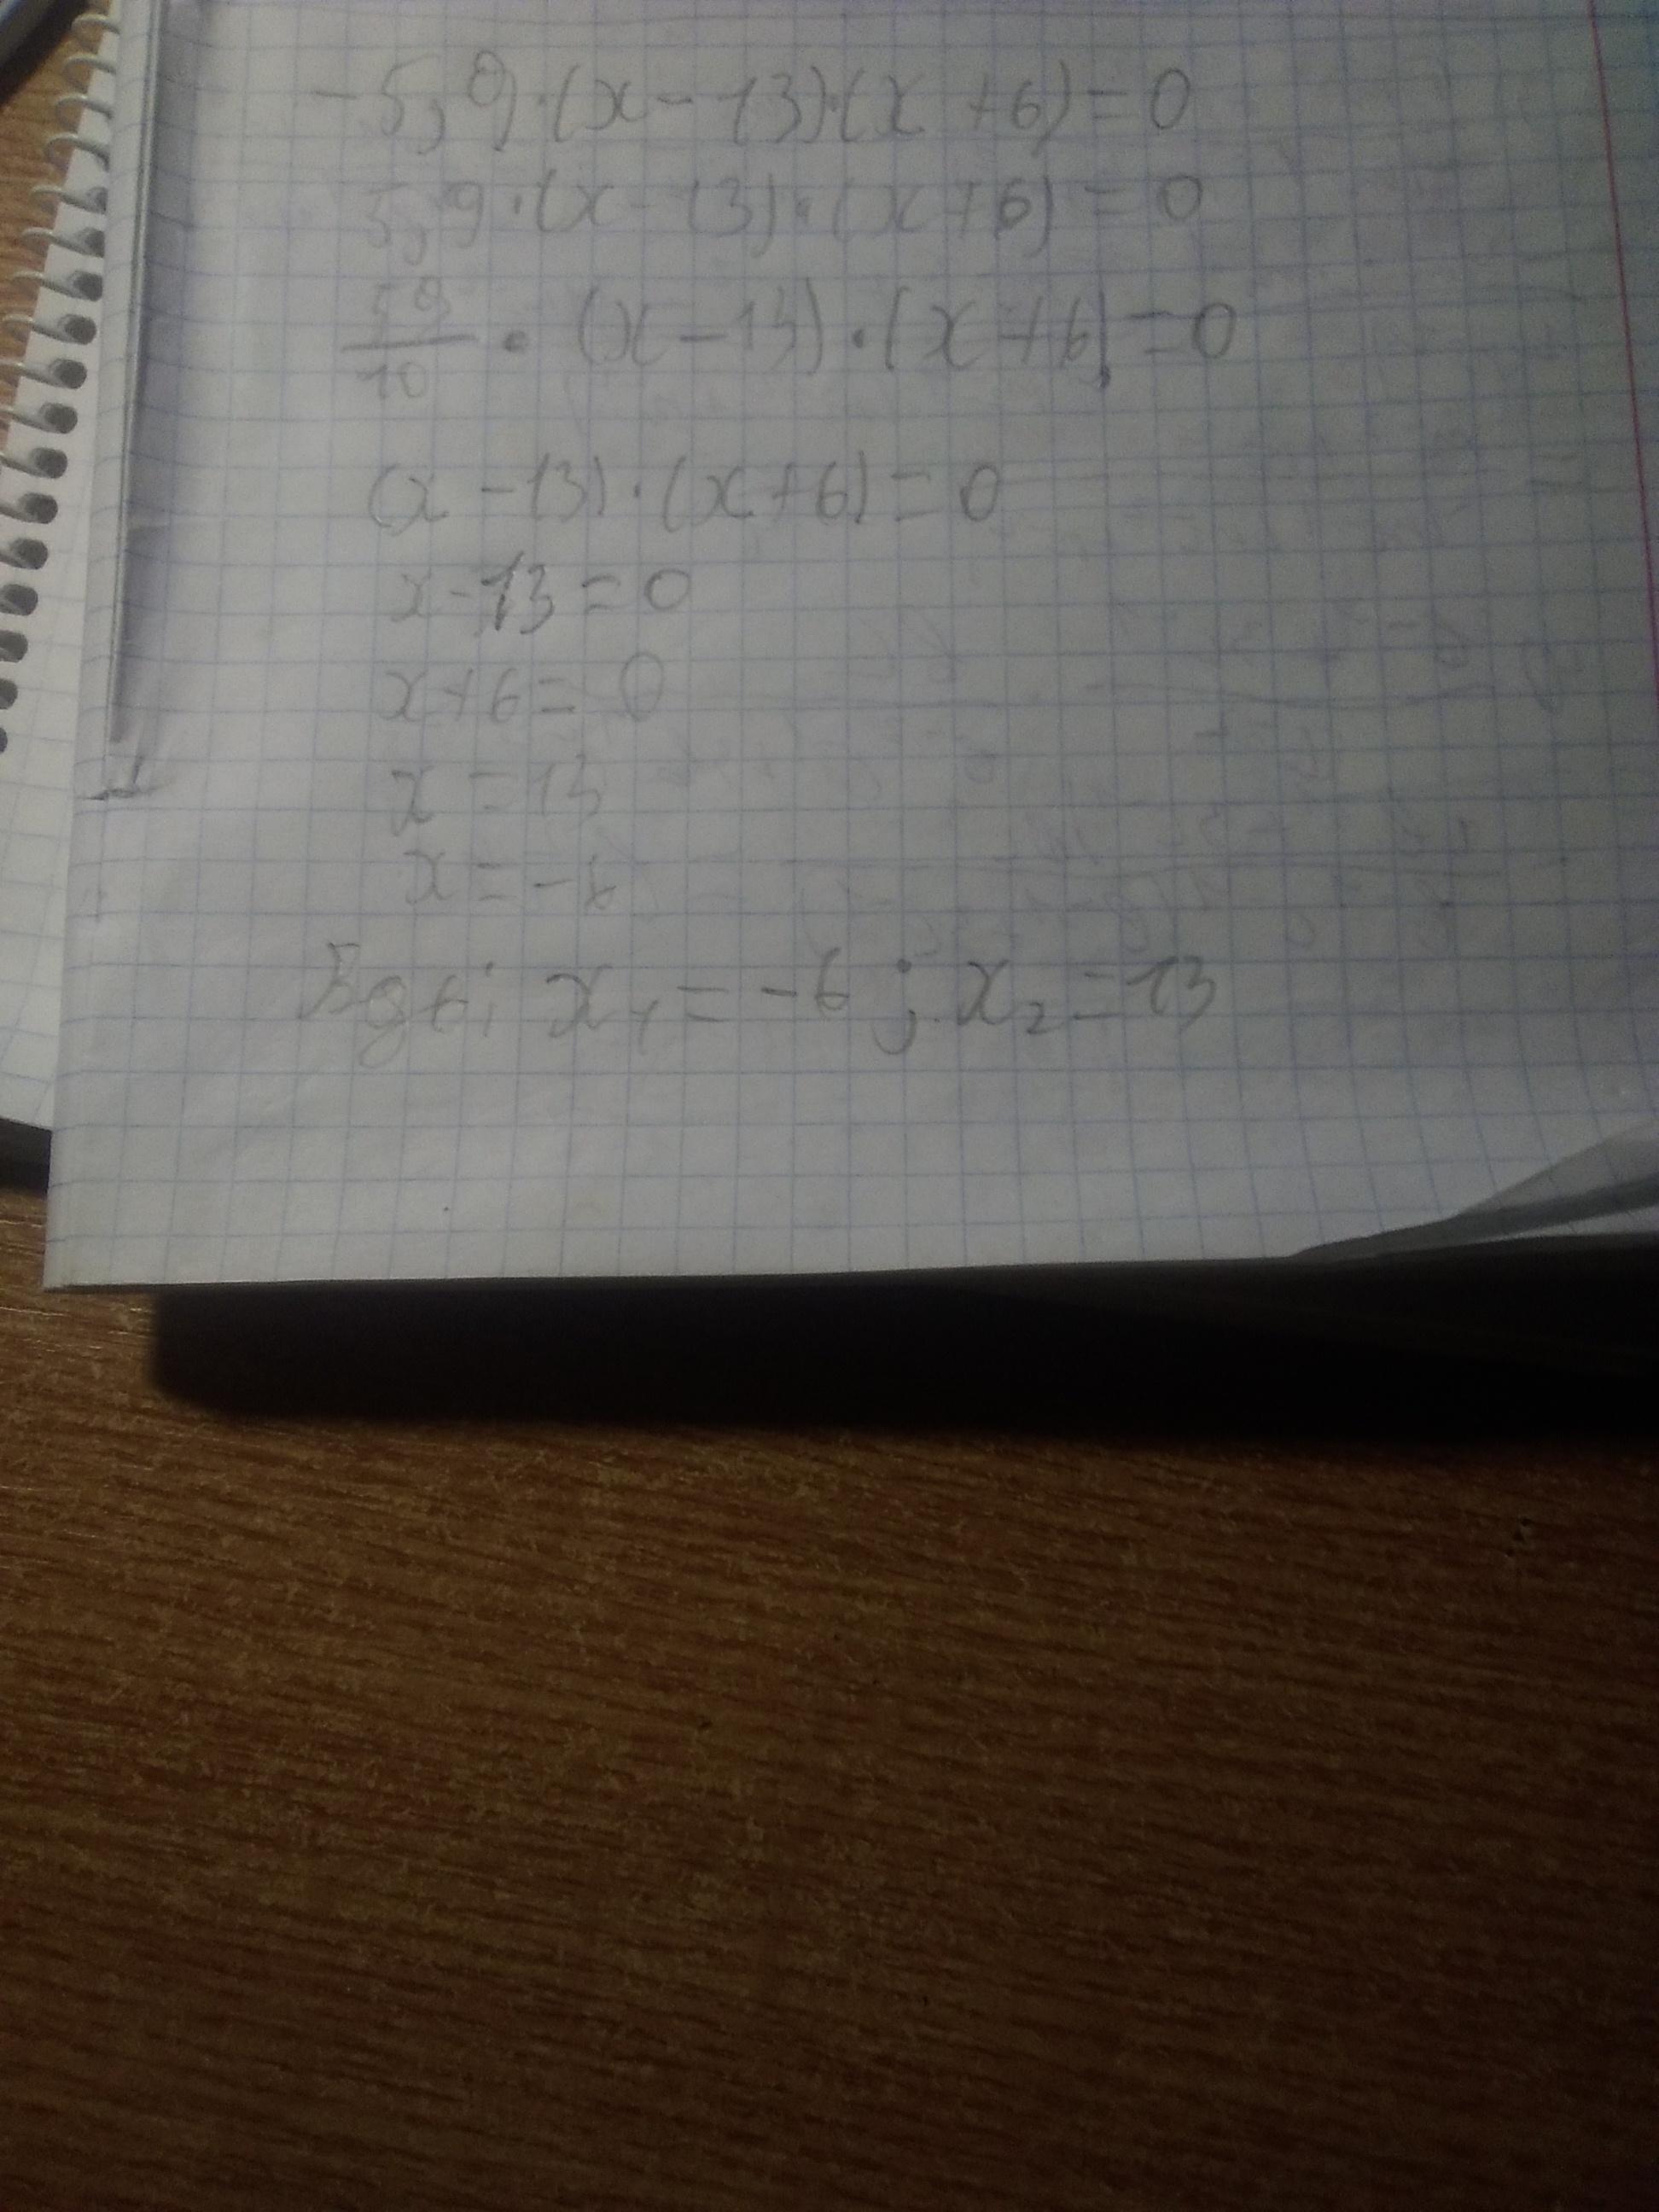 -5,9·(x-13)·(x+6)=0
5,9·(x-13)·(x+6)=0
59/10·(x-13)·(x+6)=0
(x-13)·(x+6)=0
x-13=0
x+6=0
x=13
x=-6
x₁=-6; x₂=13